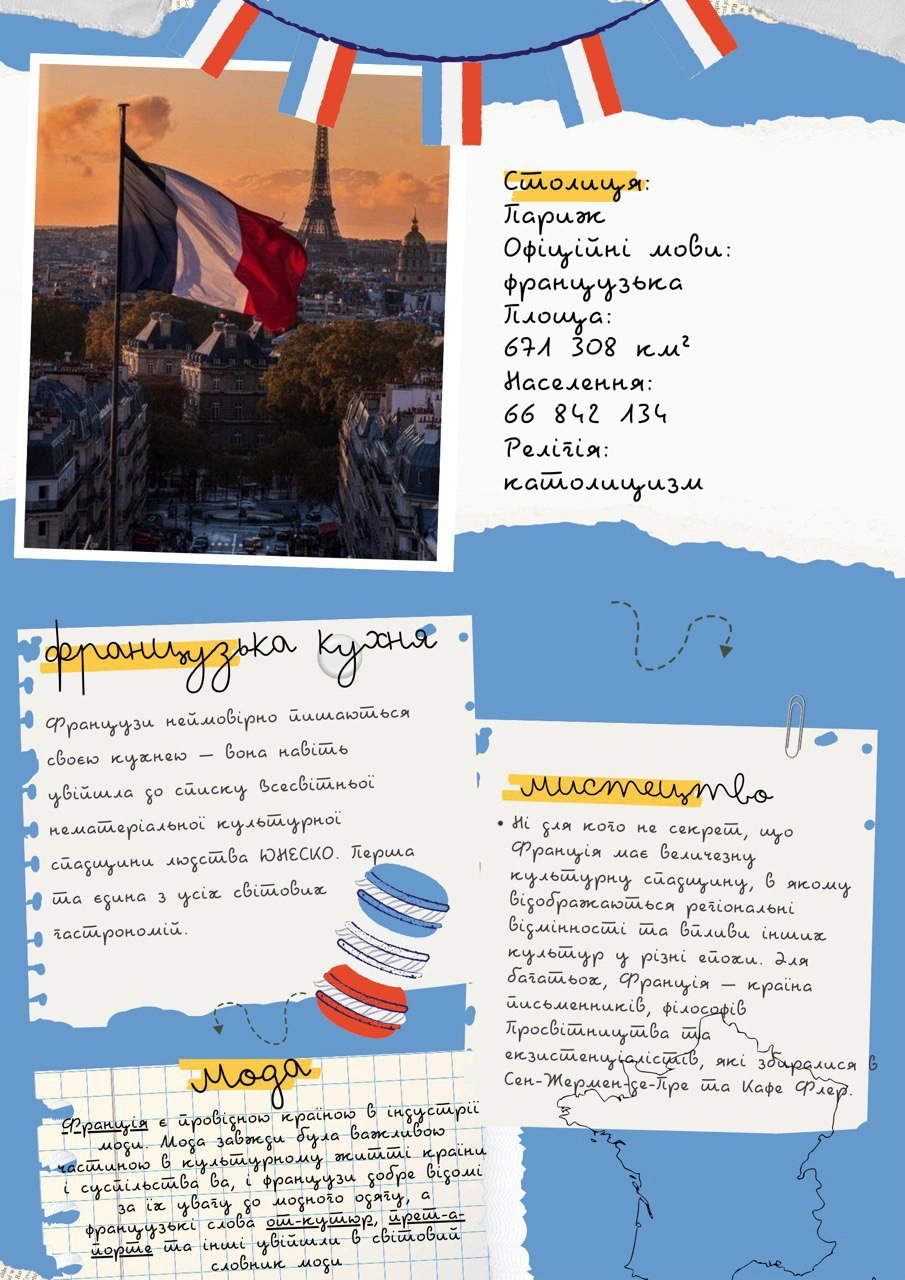 Столиця:
Париж
Офіційні мови:
французька
Площа:
671 308 км²
Населення:
66 842 134
Релігія:
католицизм
французька кухня
Французи неймовірно пишаються
своєю кухнею — вона навіть
увійшла до списку Всесвітньої
нематеріальної культурної
спадщини людства ЮНЕСКО. Перша
та єдина з усіх світових
гастрономій.
мистецтво
• Ні для кого не секрет, що
Франція має величезну
культурну спадщину, в якому
відображаються регіональні
відмінності та впливи інших
культур у різні епохи. Для
багатьох, Франція — країна
письменників, філософів
Просвітництва та
екзистенціалістів, які збиралися в
Сен-Жермен-де-Пре та Кафе Флер.
Мода
Франція є провідною країною в індустрії
моди. Мода завжди була важливою
частиною в культурному житті країни
і суспільства ва, і французи добре відомі
за їх увагу до модного одягу, а
французькі слова от-кутюр, прет-а-
порте та інші увійшли в світовий
словник моди